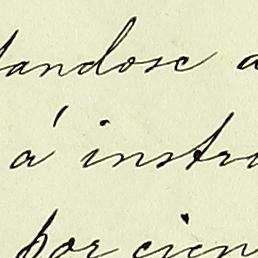 tandose a
á instru
por cien